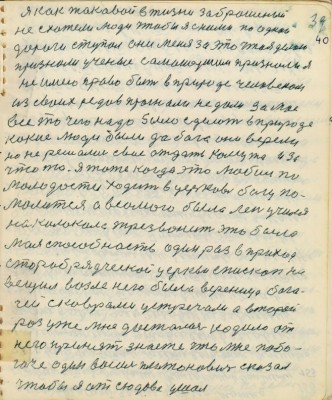 39
40
Я как таковой в жизни заброшеный
не схотели люди чтобы я сними по одной
дороги ступал они меня за это
признали ученые самоучишя признали я
не имею право быть в природе человеком
из своих редов прогнали не дали за мое
все то чего надо было сделоть в природе
какие люди были да бога они верели
но не решались свое отдать кому то и за
что то. Я тоже когда это любил по
молодости ходить в церковь богу по-
молится а весмого было лет учился
на колокола трезвонит это было
моя способность один раз в приход
старобрядческой церкви епископ на
вещил возле него была вереница бога-
чей с коврами устречали а второй
раз уже мне досталась кодило от
него принят знаете что мне побо-
гаче один васил платонович сказал
чтобы я от сюдова ушол